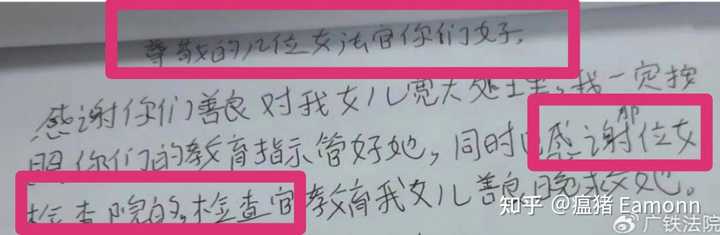 尊敬的几位女法官你们好,
感谢你们善良对我女儿宽大处理,我一定按
照你们的教育指示管好她,同时也感谢那位女
检查院的,检查官教育我女儿善良挽救她。
知乎 @瘟猪 Eamonn
广铁法院